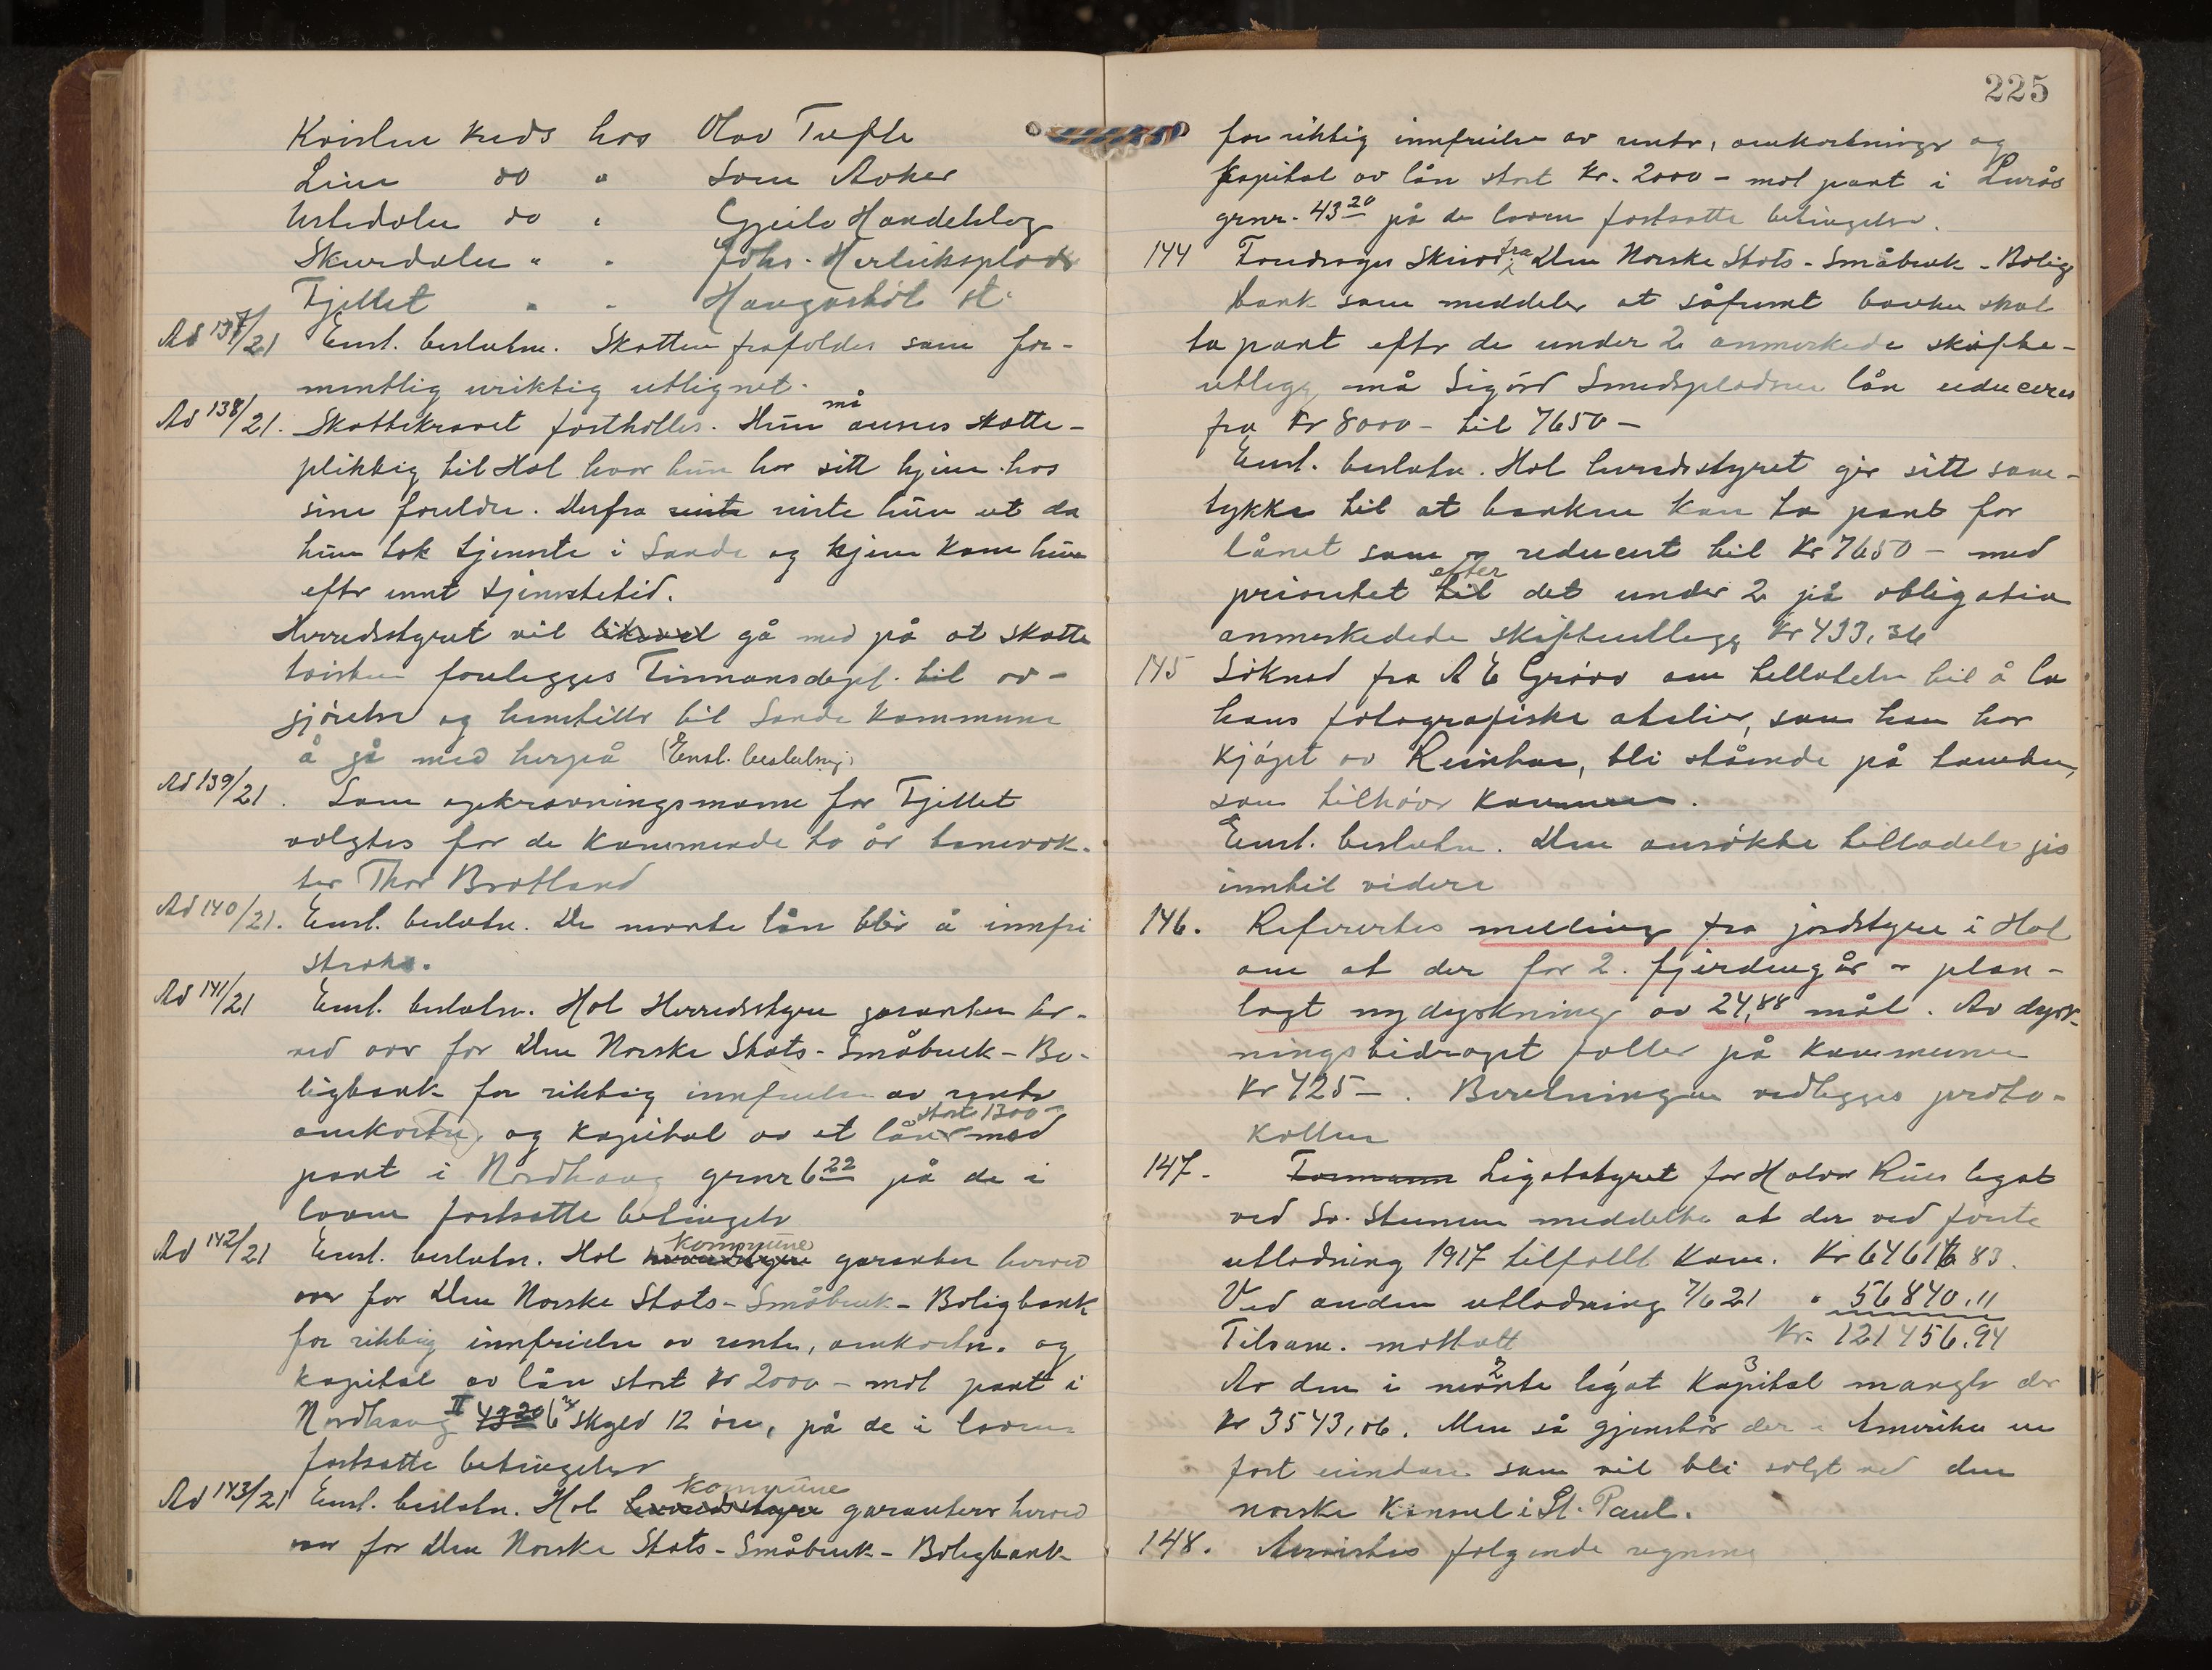 Kvislen kreds hos Olav Tufte
Lien do " Sam Aaker
Ustedalen do " Gjeilo Handelslag
Skurdalen " " Johs. Herleiksplads
Fjellet " " Haugastøl st.
Ad 137/21 Enst. beslutn. Skatten frafoldes som for-
mentlig uriktig utlignet.
Ad 138/21. Skattekravet fastholdes. Hun må ansees skatte-
pliktig til Hol hvor hun har sitt hjem hos
sine foreldre. Derfra reiste reiste hun ut da
hun tok tjeneste i Sande og hjem kom hun
efter endt tjenestetid.
Herredsstyret vil likevel gå med på at skatte
tvisten forelegges Finansdept. til av-
gjørelse og henstiller til Sande kommune
å gå med herpå (Enst. beslutning)
Ad 139/21. Som opkrævningsmann for Fjellet
valgtes for de kommende to år banevok-
ter Thor Brotland
Ad 140/21. Enst. beslutn. De nevnte lån blir å innfri
straks.
Ad 141/21 Enst. beslutn. Hol Herredsstyre garanterer her-
ved over for Den Norske Stats-Småbruk-Bo-
ligbank for riktig innfrielse av renter
omkostn. og kapital av et lån stort 1300- mod
pant i Nordhaug grnr 6 22 på de i
loven fastsatte betingelser
Ad 142/21 Enst. beslutn. Hol herredsstyre kommune garanterer herved
over for Den Norske Stats-Småbruk-Boligbank
for riktig innfrielse av renter, omkostn. og
kapital av lån stort kr 2000- mot pant i
Nordhaug II 43 20 6 skyld 12 øre, på de i loven
fastsatte betingelser
Ad 143/21 Enst. beslutn. Hol herredsstyre kommune garanterer herved
over for Den Norske Stats-Småbruk-Boligbank
225
for riktig innfrielse av renter, omkostninger og
kapital av lån stort kr. 2000- mot pant i Lurås
grnr. 43 20 på de loven fastsatte betingelser.
144 Foredrages skriv fra Den Norske Stats-Småbruk-Bolig
bank som meddeler at såfremt banken skal
ta pant efter de under 2 anmerkede skifte-
utlegg må Sigurd Smedspladsen lån reduceres
fra kr 8000- til 7650-
Enst. beslutn. Hol herredsstyret gir sitt sam-
tykke til at banken kan ta pant for
lånet som er reducert til kr 7650- med
prioritet til efter det under 2 på obligation
anmerkedede skifteutlegg kr 433,36
145 Søknad fra A E Grøvo om tillatelse til å la
hans fotografiske atelier, som han har
kjøpt av Reinton, bli stående på tomten,
som tilhører kommunen.
Enst. beslutn. Den ansøkte tilladelse gis
inntil videre
146. Refertes melding fra jordstyre i Hol
om at der for 2. fjerdingår er plan-
lagt nydyrkning av 24,88 mål. Av dyrk-
ningsbidraget faller på kommunen
kr 425-. Beretningen vedlegges proto-
kollen
147. Formann Ligatstyret for Halvor Ruis legat
ved Sv. Stenersen meddelte at der ved første
utlodning 1917 tilfallt kom. kr 64616 83.
Ved anden utlodning 7/6 21 " 56840.11
Tilsam. mottatt kr. 121456.94
Av den i nevnte legat kapital mangler der
kr 3543,06. Men så gjenstår der i Amerika en
fast eiendom som vil bli solgt ved den
norske konsul i St. Paul.
148. Anvistes følgende regning